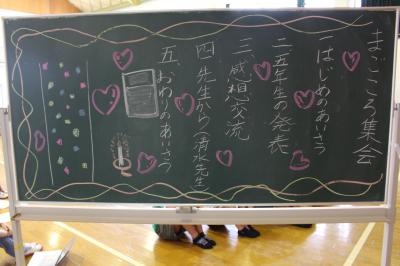 まごころ集会
一 はじめのあいさつ
二 五年生の発表
三 感想交流
四 先生から（清水先生）
五 おわりのあいさつ